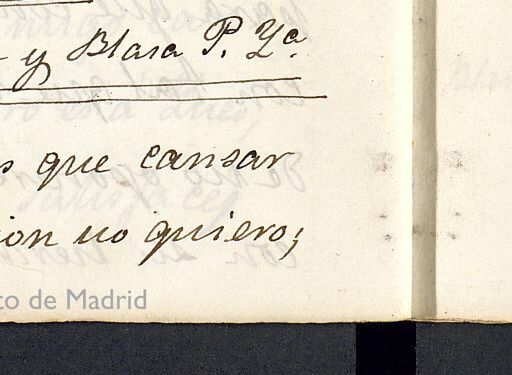 y Blasa P. Yª
s que cansar
ion no quiero;
to de Madrid